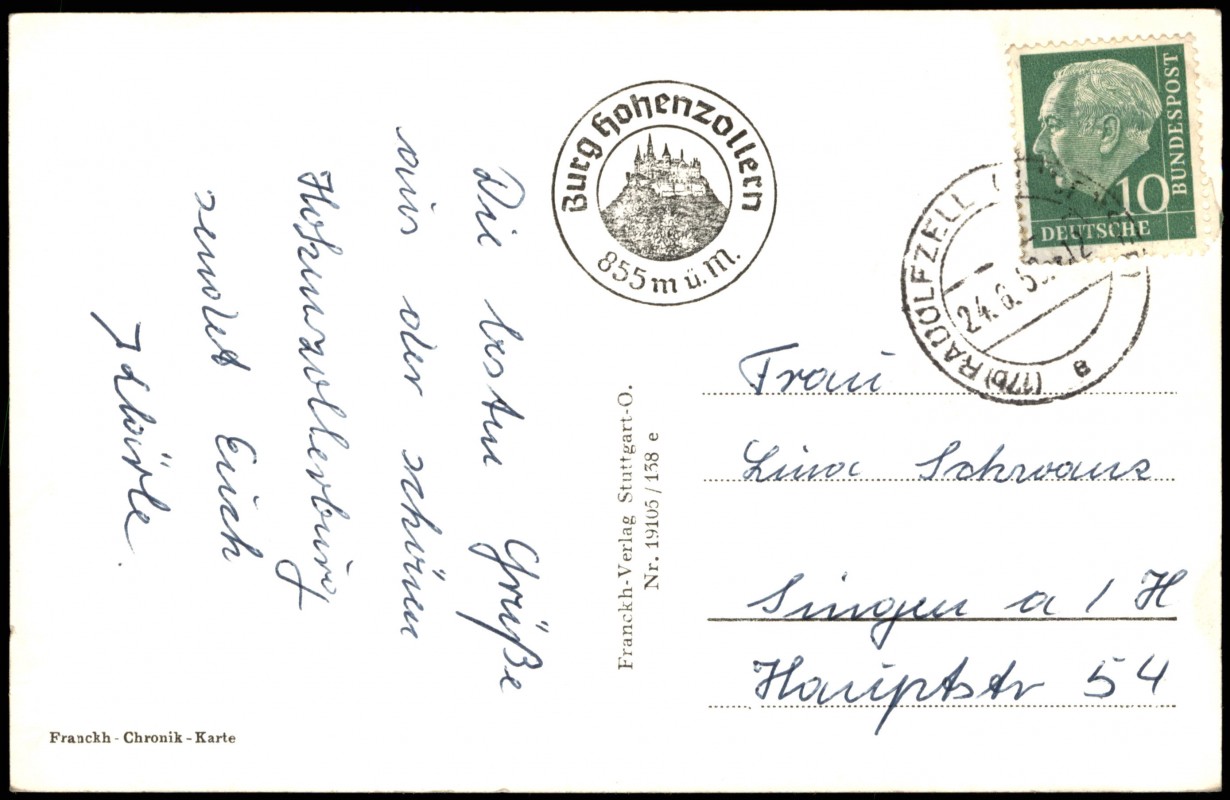 Die besten Grüße
aus der schönen
Hohenzollerburg
sendet Euch
Burg Hohenzollern
855 m ü. M.
Franckh-Verlag Stuttgart-O.
Nr. 19105/138 e
Franckh-Chronik-Karte
BUNDESPOST
10
DEUTSCHE
(17b) RADOLFZELL
24.6.5
e
Frau
Lina Schwanz
Singen a / H
Hauptstr 54